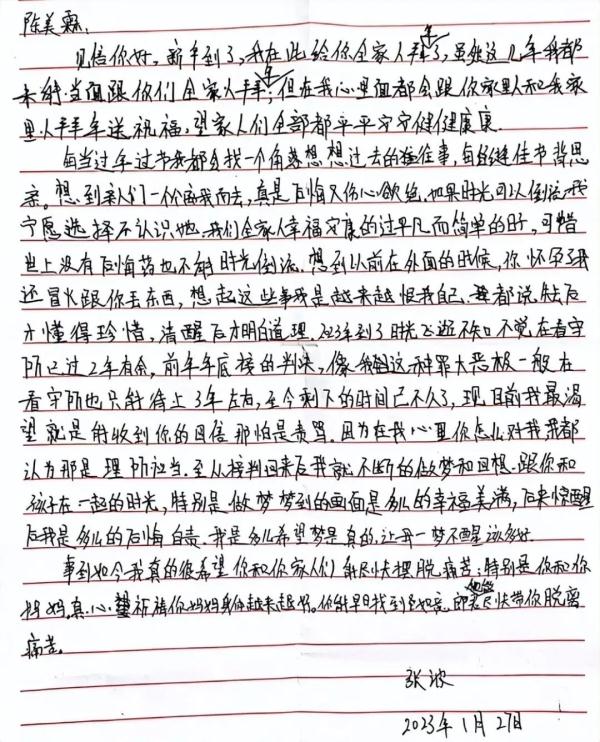 陈美霖：
见信你好，新年到了，我在此给你全家人拜年了，虽然这几年我都
未能当面跟你们全家人拜年，但在我心里面都会跟你家里人和我家
里人拜年送祝福，望家人们全部都平平安安健健康康.
每当过年过节我都会找一个角落想想过去的往事，每逢佳节背思
亲。想到亲人们一个个离我而去，真是后悔又伤心欲绝，如果时光可以倒流我
宁愿选择不认识她.我们全家人幸福安康的过平凡而简单的日子，可惜
世上没有后悔药也不能时光倒流.想到以前在外面的时候，你怀孕了我
还冒火跟你丢东西，想起这些事我是越来越恨我自己.我都说失后
才懂得珍惜，清醒后才明白道理.2023年到了时光飞逝不知不觉在看守
所已过2年有余，前年年底接的判决，像我这种罪大恶极一般在
看守所也只能待上3年左右，至今剩下的时间已不久了，现目前我最渴
望就是能收到你的回信那怕是责骂.因为在我心里你怎么对我我都
认为那是理所应当.至从接判回来后我就不断的做梦和回想.跟你和
孩子在一起的时光，特别是做梦梦到的画面是多么的幸福美满，后来惊醒
后我是多么的后悔自责.我是多么希望梦是真的，让我一梦不醒该多好
事到如今我真的很希望你和你家人们能尽快摆脱痛苦；特别是你和你
妈妈.真心祈祷你妈妈身体越来越好。你能早日找到尽快带你脱离
痛苦。
张波
2023年1月27日